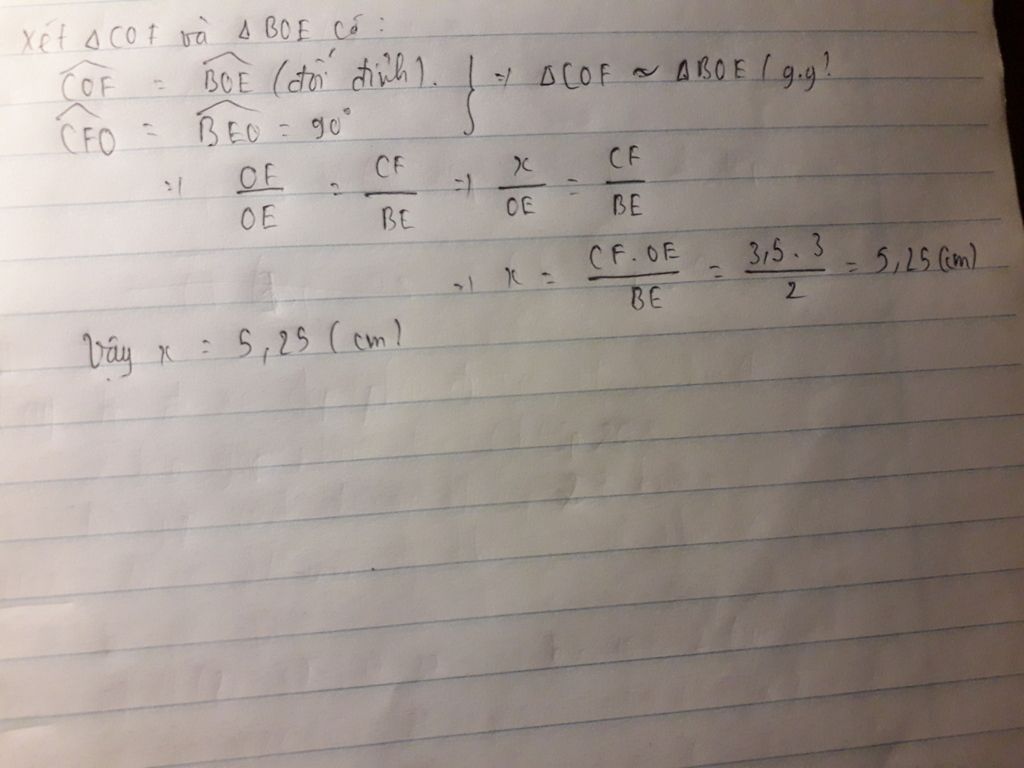 Xét ΔCOF và ΔBOE có:
COF = BOE (đối đỉnh).
CFO = BEO = 90° } => ΔCOF ~ ΔBOE (g.g)
=> OF/OE = CF/BE => x/OE = CF/BE
=> x = CF.OE/BE = 3,5.3/2 = 5,25 (cm)
Vậy x = 5,25 (cm)